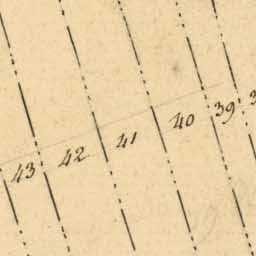 43 42 41 40 39